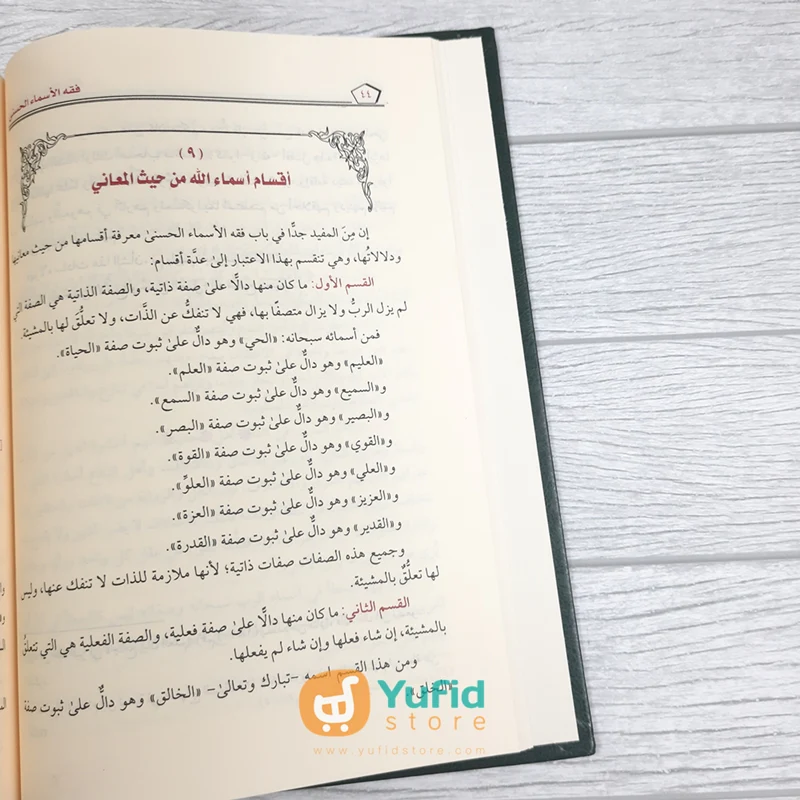 فقه الأسماء الحسنى
٤٤
(٩)
أقسام أسماء الله من حيث المعاني
إن مِنَ المفيد جدًّا في باب فقه الأسماء الحسنىٰ معرفة أقسامها من حيث معانيها
ودلالاتُها، وهي تنقسم بهذا الاعتبار إلىٰ عدَّة أقسام:
القسم الأول: ما كان منها دالًّا علىٰ صفة ذاتية، والصفة الذاتية هي الصفة التي
لم يزل الربُّ ولا يزال متصفًا بها، فهي لا تنفكُّ عن الذَّات، ولا تعلُّقَ لها بالمشيئة.
فمن أسمائه سبحانه: «الحي» وهو دالٌّ علىٰ ثبوت صفة «الحياة».
«العليم» وهو دالٌّ علىٰ ثبوت صفة «العلم».
و«السميع» وهو دالٌّ علىٰ ثبوت صفة «السمع».
و«البصير» وهو دالٌّ علىٰ ثبوت صفة «البصر».
و«القوي» وهو دالٌّ علىٰ ثبوت صفة «القوة».
و«العلي» وهو دالٌّ علىٰ ثبوت صفة «العلوِّ».
و«العزيز» وهو دالٌّ علىٰ ثبوت صفة «العزة».
و«القدير» وهو دالٌّ علىٰ ثبوت صفة «القدرة».
وجميع هذه الصفات صفات ذاتية؛ لأنها ملازمة للذات لا تنفك عنها، وليس
لها تعلُّقٌ بالمشيئة.
القسم الثاني: ما كان منها دالًّا علىٰ صفة فعلية، والصفة الفعلية هي التي تتعلقُ
بالمشيئة، إن شاء فعلها وإن شاء لم يفعلها.
ومن هذا القسم اسمه –تبارك وتعالىٰ– «الخالق» وهو دالٌّ علىٰ ثبوت صفة
«الخلق».
Yufid
store
www.yufidstore.com